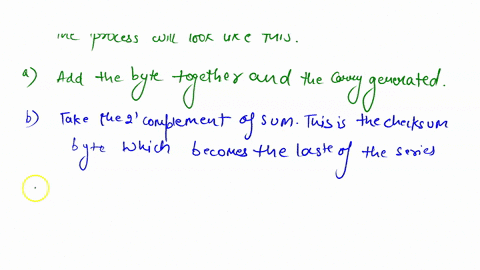 the process will look like this.
a) Add the byte together and the carry generated.
b) Take the 2' complement of sum. This is the checksum
byte which becomes the laste of the series